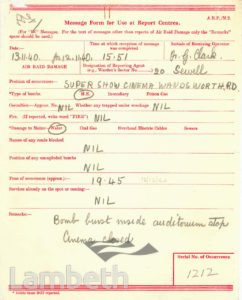 A.R.P./M.3.
Message Form for Use at Report Centres.
(For "IN" Messages. For the text of messages other than reports of Air Raid Damage only the "Remarks" space should be used.)
Date
Time at which reception of message was completed
Initials of Receiving Operator
13.11.40.
15.51
G. Clark
AIR RAID DAMAGE
Designation of Reporting Agent
(e.g., Warden's Sector No.
20 Sewell
Position of occurrence:
SUPER SHOW CINEMA WANDSWORTH RD
*Type of bombs:
H.E.
Incendiary
Poison Gas
Casualties:—Approx. No.
NIL
Whether any trapped under wreckage
NIL
Fire. (If reported, write word "FIRE")
NIL
*Damage to Mains:
Water
Coal Gas
Overhead Electric Cables
Sewers
Names of any roads blocked
NIL
Position of any unexploded bombs
NIL
Time of occurrence (approx.)
19.45
Services already on the spot or coming:—
NIL
Remarks:—
Bomb burst inside auditorium stop
Cinema closed
Serial No. of Occurrence
1212
* Delete those NOT reported.
LANDMARK
Lambeth